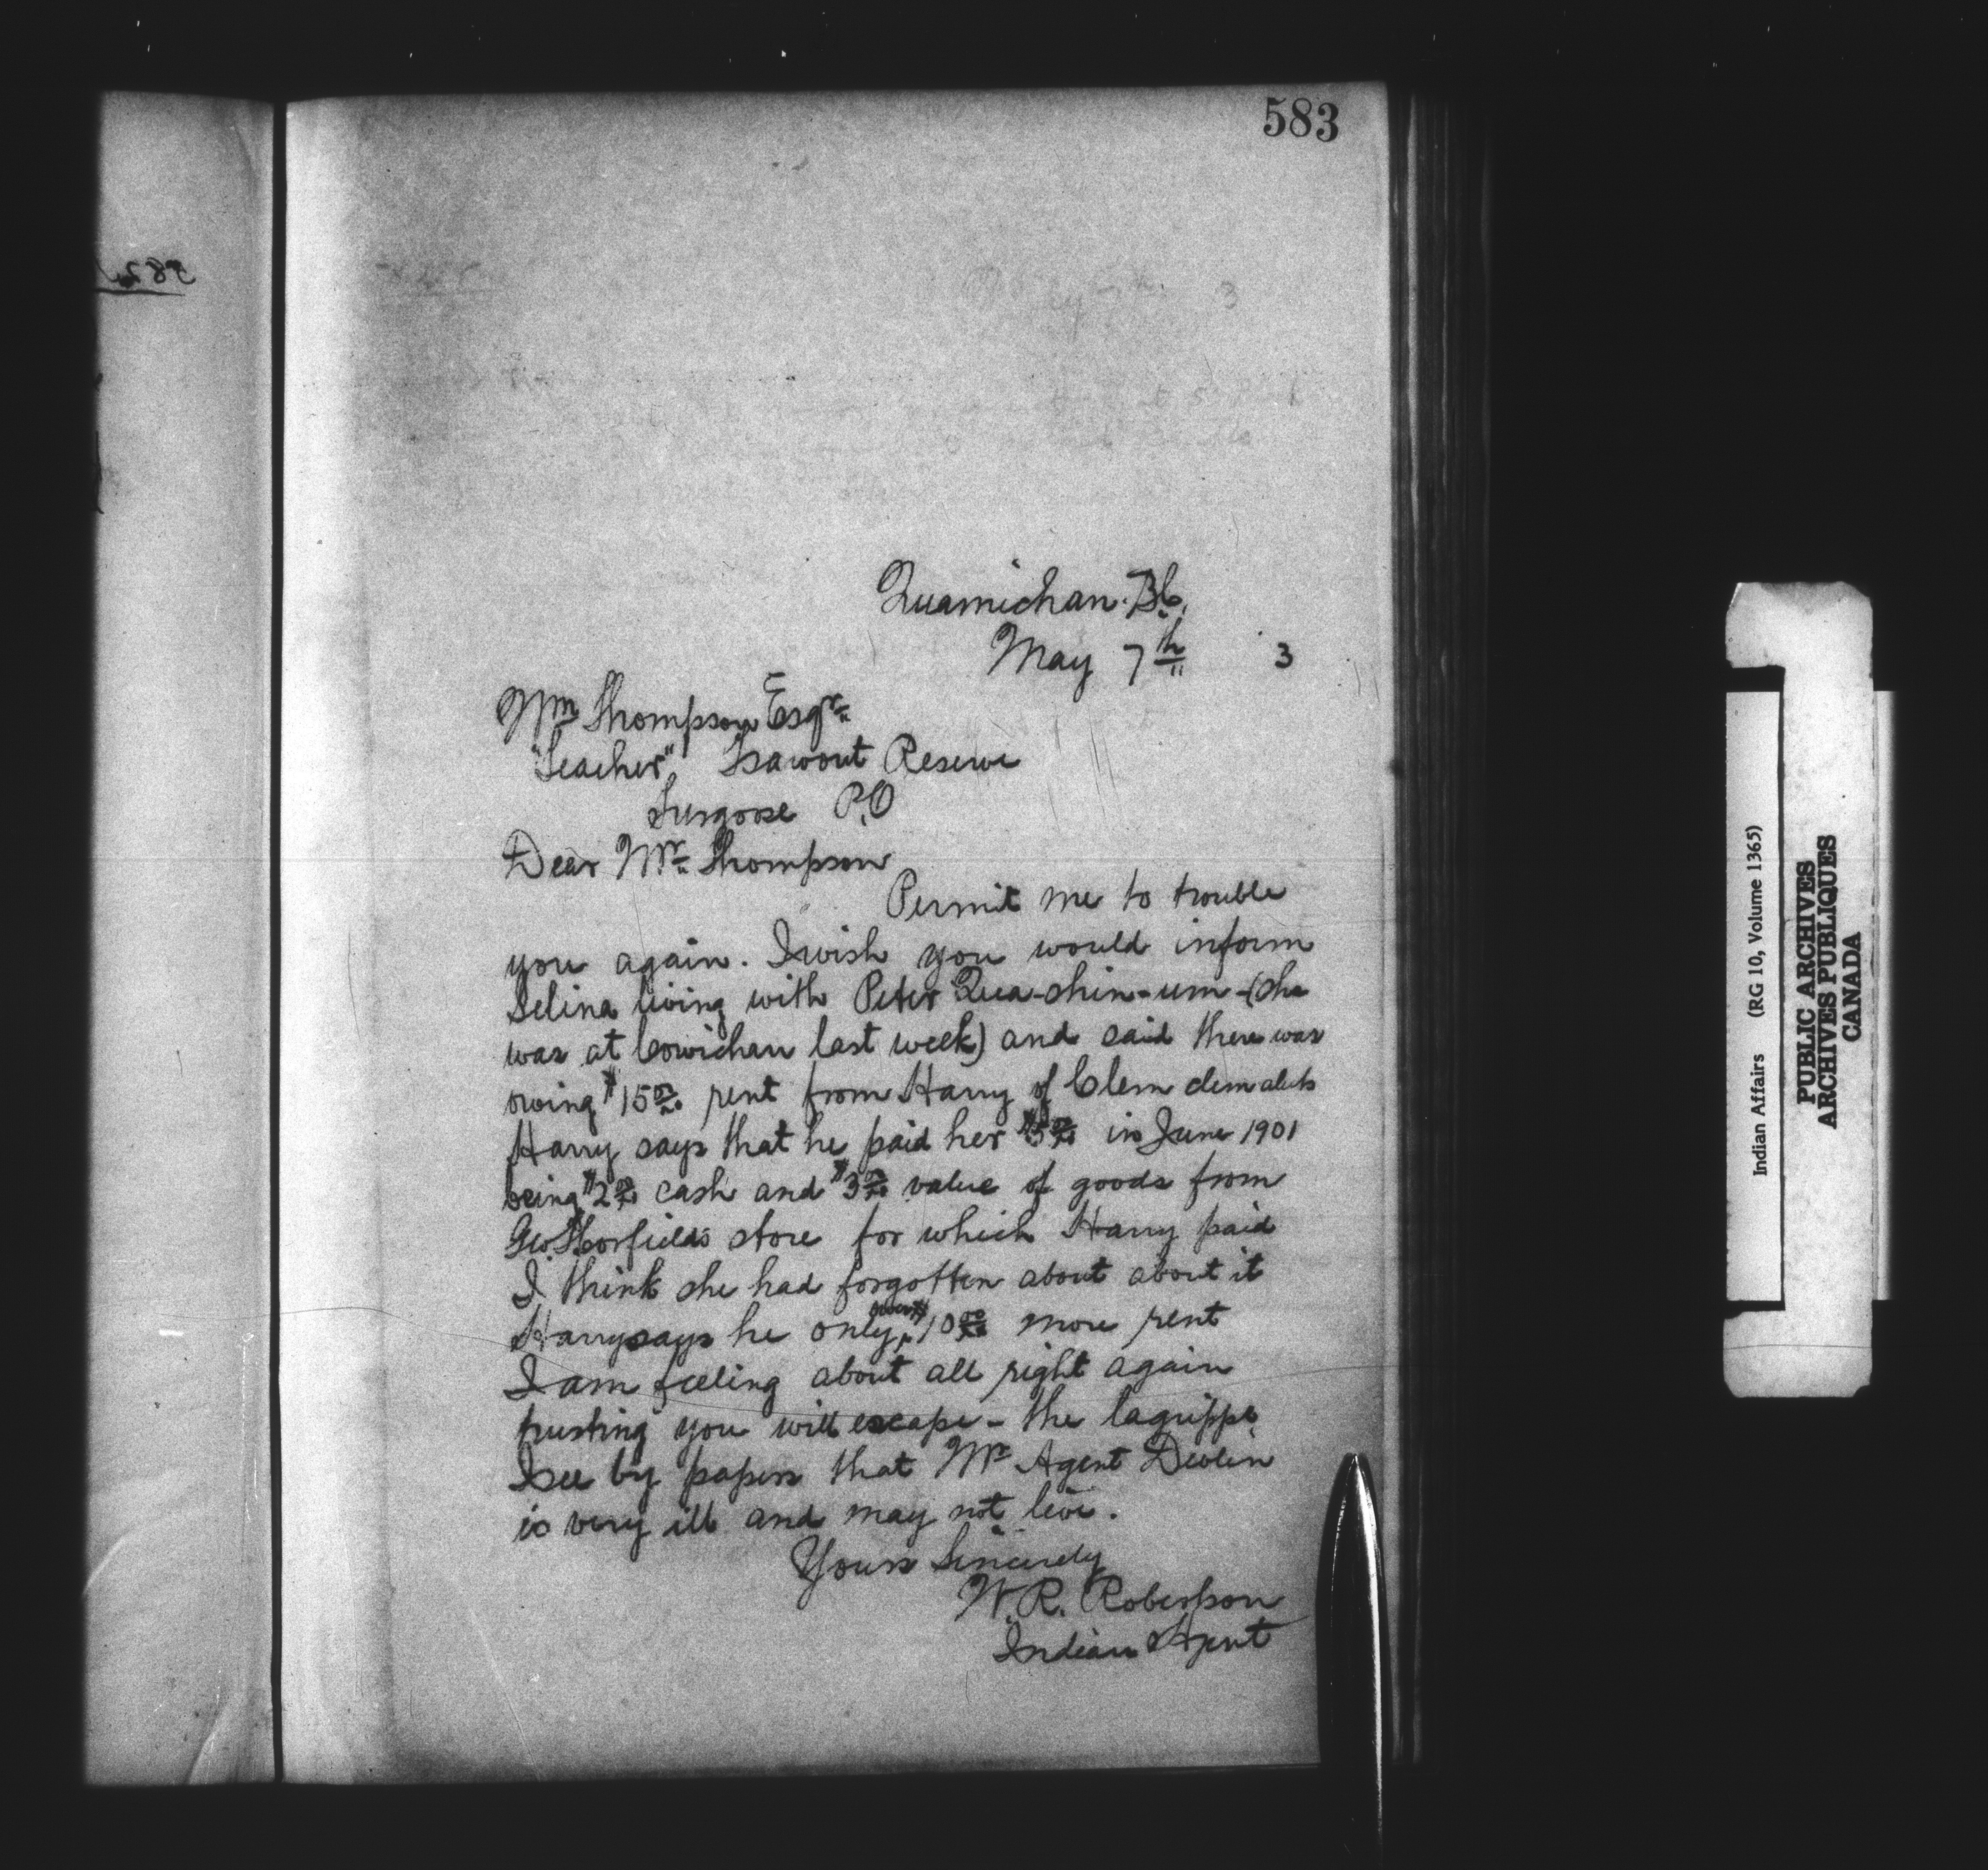 583
582
Quamichan B.C.
May 7th 3
Wm Thompson Esqre
"Teacher" Tsawout Reserve
Turgoose P.O
Dear Mr Thompson
Permit me to trouble
you again. I wish you would inform
Selina living with Peter Qua-chin-um-(she
was at Cowichan last week) and said there was
owing $15 00 rent from Harry of Clem clem aluts
Harry says that he paid her $5 00 in June 1901
being $2 00 cash and $3 00 value of goods from
Geo. store for which Harry paid
I think she had forgotten about about it
Harry says he only owes $10 00 more rent
I am feeling about all right again
trusting you will escape - the lagrippe
I see by papers that Mr Agent Devlin
is very ill and may not live.
Yours Sincerely
W.R. Robertson
Indian Agent
Indian Affairs (RG 10, Volume 1365)
PUBLIC ARCHIVES
ARCHIVES PUBLIQUES
CANADA